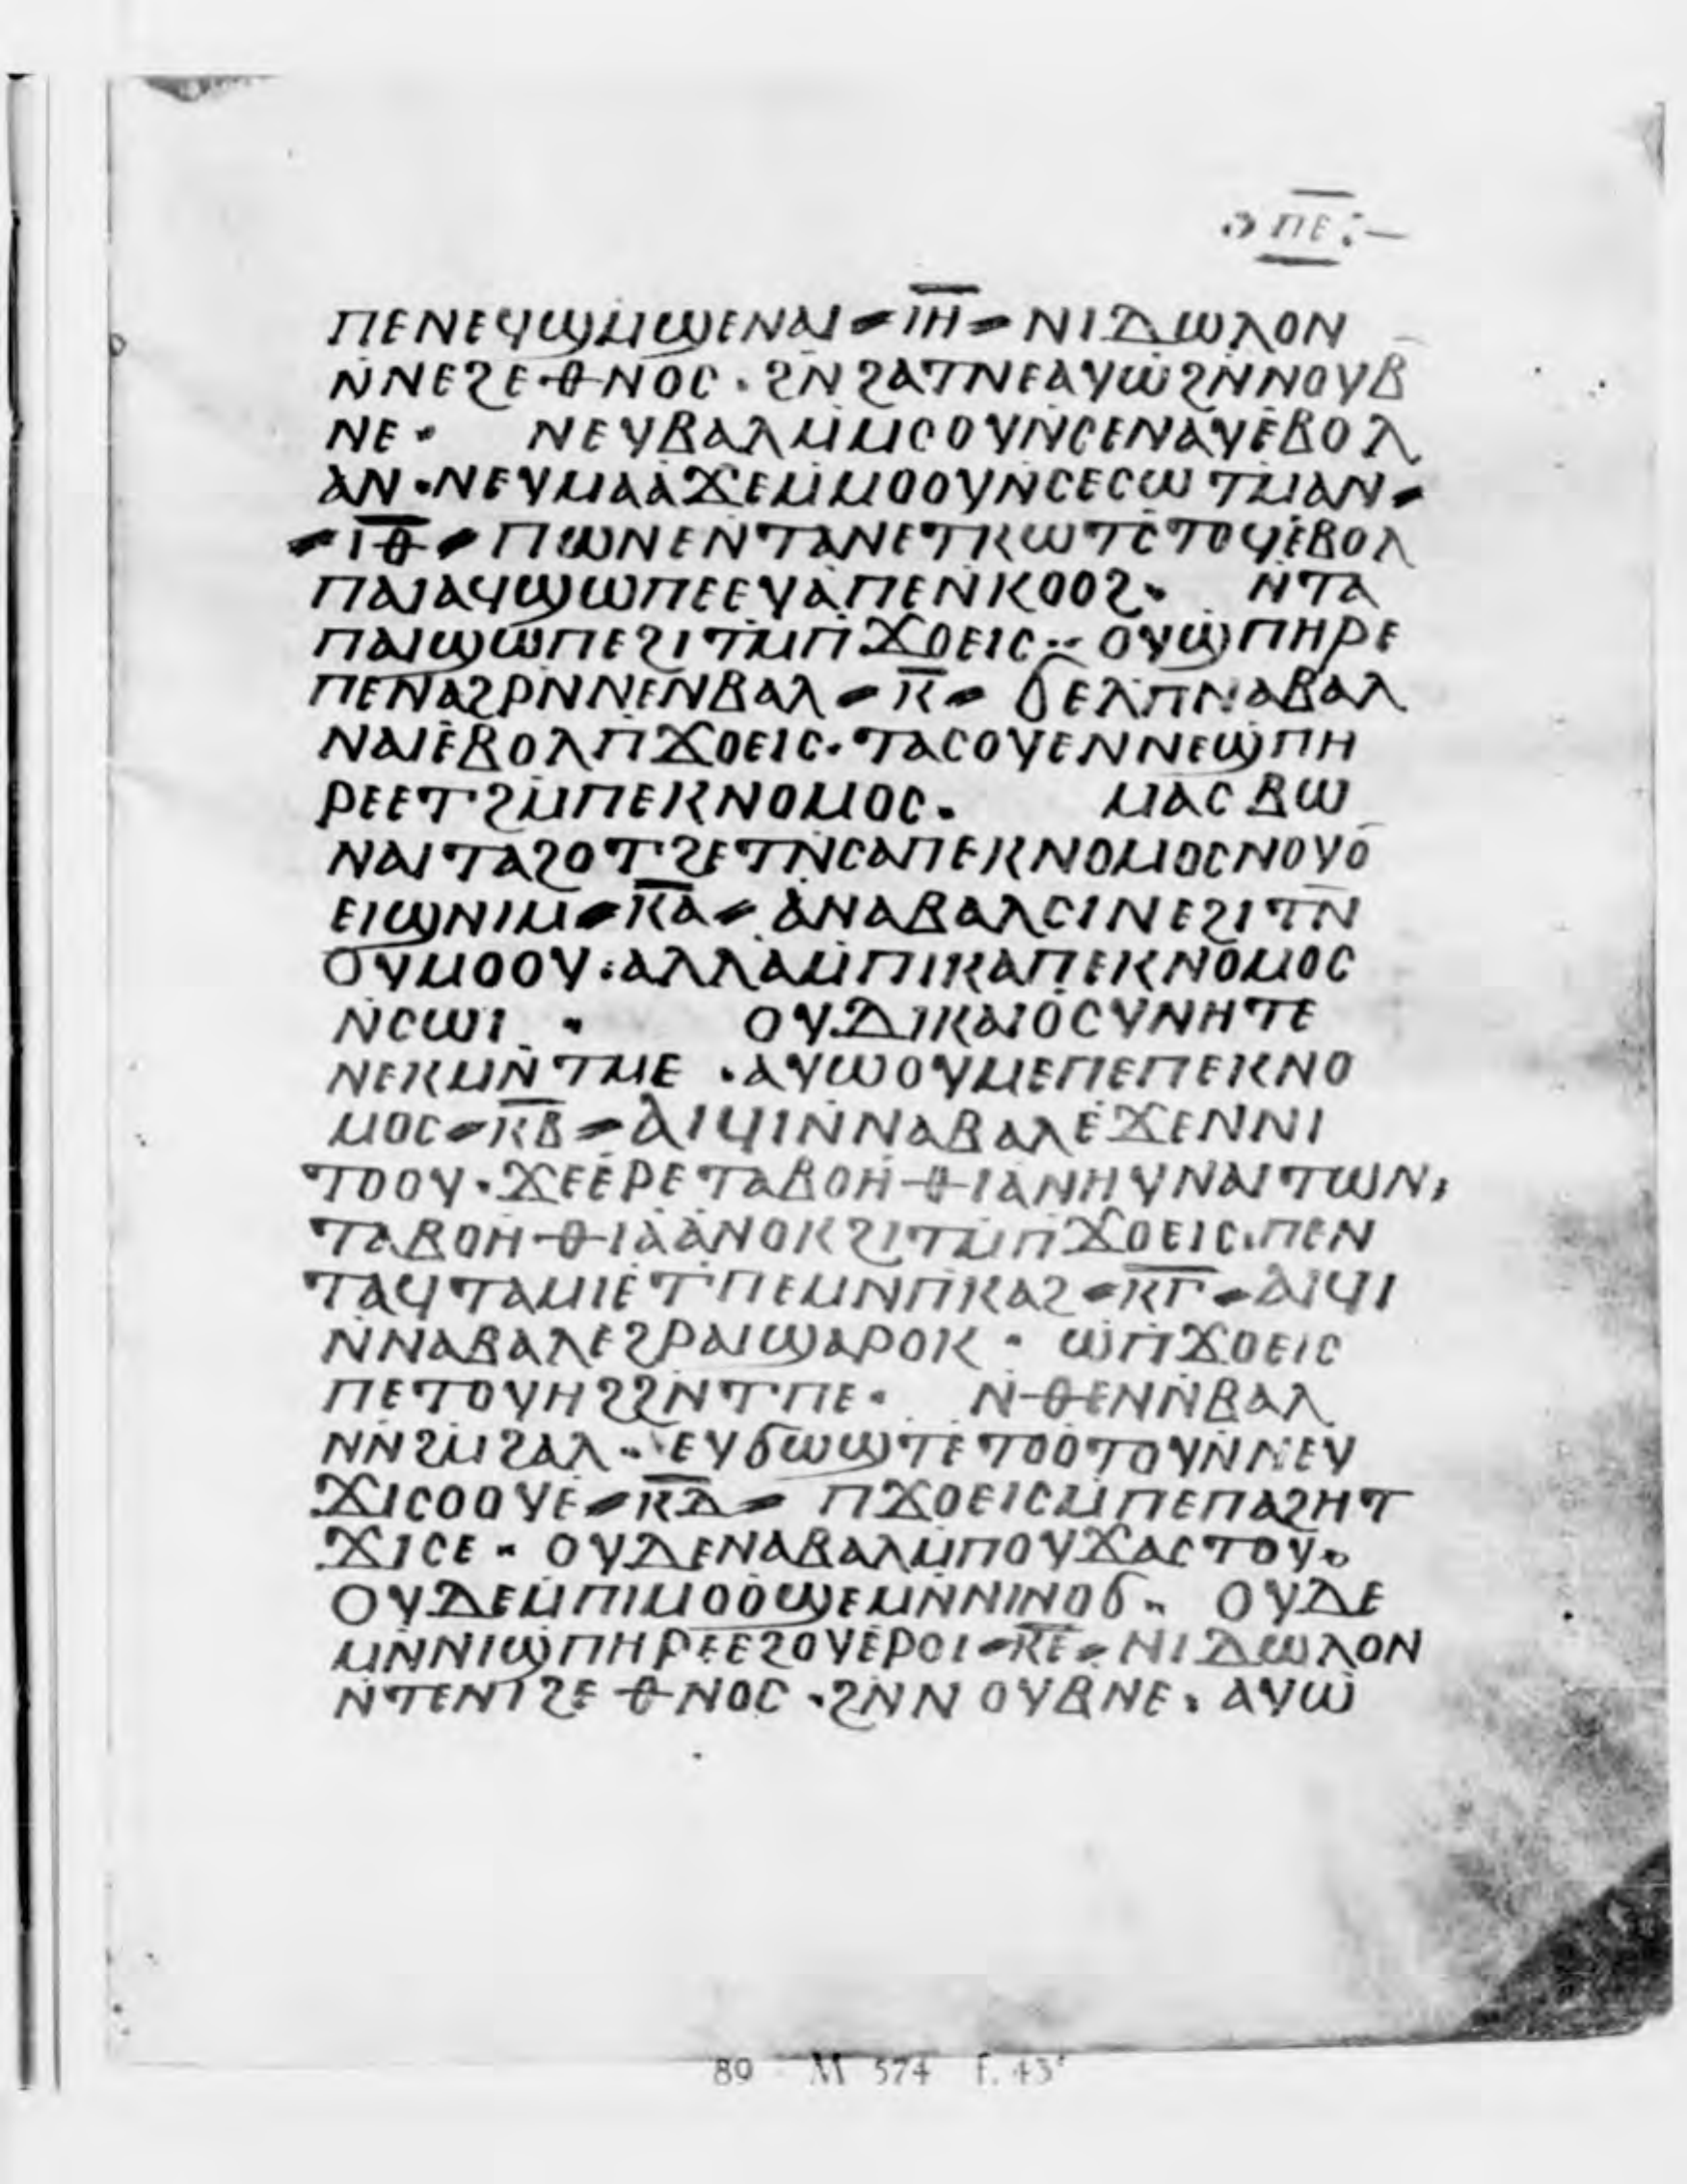 ⲡⲉ:—
ⲡⲉⲛⲉϥϣⲙϣⲉⲛⲁⲓ ⸗ ⲓ̅ⲏ̅ ⸗ ⲛⲓⲇⲱⲗⲟⲛ
ⲛ̇ⲛⲉϩⲉⲑⲛⲟⲥ · ϩⲛ̇ϩⲁⲧⲛⲉⲁⲩⲱ̇ϩⲛ̇ⲛⲟⲩⲃ
ⲛⲉ · ⲛⲉⲩⲃⲁⲗⲙ̇ⲙⲟⲟⲩⲛ̇ⲥⲉⲛⲁⲩⲉ̇ⲃⲟⲗ
ⲁ̇ⲛ · ⲛⲉⲩⲙⲁⲁ̇ϫⲉⲙ̇ⲙⲟⲟⲩⲛ̇ⲥⲉⲥⲱⲧⲙ̇ⲁⲛ ⸗
⸗ ⲓ̅ⲑ̅ ⸗ ⲡⲱⲛⲉⲛ̇ⲧⲁⲛⲉⲧⲕⲱⲧⲥ̇ⲧⲟϥⲉ̇ⲃⲟⲗ
ⲡⲁⲓⲁϥϣⲱⲡⲉⲉⲩⲁ̇ⲡⲉⲛ̇ⲕⲟⲟϩ · ⲛ̇ⲧⲁ
ⲡⲁⲓϣⲱⲡⲉϩⲓⲧⲙ̇ⲡ̇ϫⲟⲉⲓⲥ ·· ⲟⲩϣ̇ⲡⲏⲣⲉ
ⲡⲉⲛⲁϩⲣⲛ̇ⲛⲉⲛⲃⲁⲗ ⸗ ⲕ̅ ⸗ ϭⲉⲗⲡ̇ⲛⲁⲃⲁⲗ
ⲛⲁⲓⲉ̇ⲃⲟⲗⲡ̇ϫⲟⲉⲓⲥ · ⲧⲁⲥⲟⲩⲉⲛⲛⲉϣ̇ⲡⲏ
ⲣⲉⲉⲧ'ϩⲙ̇ⲡⲉⲕⲛⲟⲙⲟⲥ · ⲙⲁⲥⲃⲱ
ⲛⲁⲓⲧⲁϩⲟⲧ'ϩⲉⲧⲛ̇ⲥⲁⲡⲉⲕⲛⲟⲙⲟⲥⲛⲟⲩⲟ̇
ⲉⲓϣⲛⲓⲙ ⸗ ⲕ̅ⲁ̅ ⸗ ⲁ̇ⲛⲁⲃⲁⲗⲥⲓⲛⲉϩⲓⲧⲛ̅
ⲟⲩⲙⲟⲟⲩ · ⲁⲗⲗⲁⲙ̇ⲡⲓⲕⲁⲡⲉⲕⲛⲟⲙⲟⲥ
ⲛ̇ⲥⲱⲓ · ⲟⲩⲇⲓⲕⲁⲓⲟ̇ⲥⲩⲛⲏⲧⲉ
ⲛⲉⲕⲙⲛ̇ⲧⲙⲉ · ⲁⲩⲱⲟⲩⲙⲉⲡⲉⲡⲉⲕⲛⲟ
ⲙⲟⲥ ⸗ ⲕ̅ⲃ̅ ⸗ ⲁⲓϥⲓⲛ̇ⲛⲁⲃⲁⲗⲉ̇ϫⲉⲛⲛⲓ
ⲧⲟⲟⲩ · ϫⲉⲉ̇ⲣⲉⲧⲁⲃⲟⲏ̇ⲑⲓⲁⲛⲏⲩⲛⲁⲓⲧⲱⲛ,
ⲧⲁⲃⲟⲏⲑⲓⲁ̇ⲁ̇ⲛⲟⲕϩⲓⲧⲙ̇ⲡ̇ϫⲟⲉⲓⲥ · ⲡⲉⲛ
ⲧⲁϥⲧⲁⲙⲓⲉ̇ⲧ'ⲡⲉⲙⲛⲡ̇ⲕⲁϩ ⸗ ⲕ̅ⲅ̅ ⸗ ⲁⲓϥⲓ
ⲛ̇ⲛⲁⲃⲁⲗⲉϩⲣⲁⲓϣⲁⲣⲟⲕ · ⲱ̇ⲡ̇ϫⲟⲉⲓⲥ
ⲡⲉⲧⲟⲩⲏϩϩⲛ̇ⲧ'ⲡⲉ · ⲛ̇ⲑⲉⲛ̇ⲛ̇ⲃⲁⲗ
ⲛ̇ⲛ̇ϩⲙ̇ϩⲁⲗ · ⲉⲩϭⲱϣⲧⲉⲧⲟⲟⲧⲟⲩⲛ̇ⲛⲉⲩ
ϫⲓⲥⲟⲟⲩⲉ̇ ⸗ ⲕ̅ⲇ̅ ⸗ ⲡϫⲟⲉⲓⲥⲙ̇ⲡⲉⲡⲁϩⲏⲧ
ϫⲓⲥⲉ · ⲟⲩⲇⲉⲛⲁⲃⲁⲗⲙ̇ⲡⲟⲩϫⲁⲥⲧⲟⲩ ·
ⲟⲩⲇⲉⲙ̇ⲡⲓⲙⲟⲟ̇ϣⲉⲙⲛ̇ⲛⲓⲛⲟϭ · ⲟⲩⲇⲉ
ⲙⲛ̇ⲛⲓϣ̇ⲡⲏⲣⲉⲉϩⲟⲩⲉ̇ⲣⲟⲓ ⸗ ⲕ̅ⲉ̅ ⸗ ⲛⲓⲇⲱⲗⲟⲛ
ⲛ̇ⲧⲉⲛⲓϩⲉⲑⲛⲟⲥ · ϩⲛ̇ⲛⲟⲩⲃⲛⲉ · ⲁⲩⲱ̇
89 M 574 f. 43ʳ